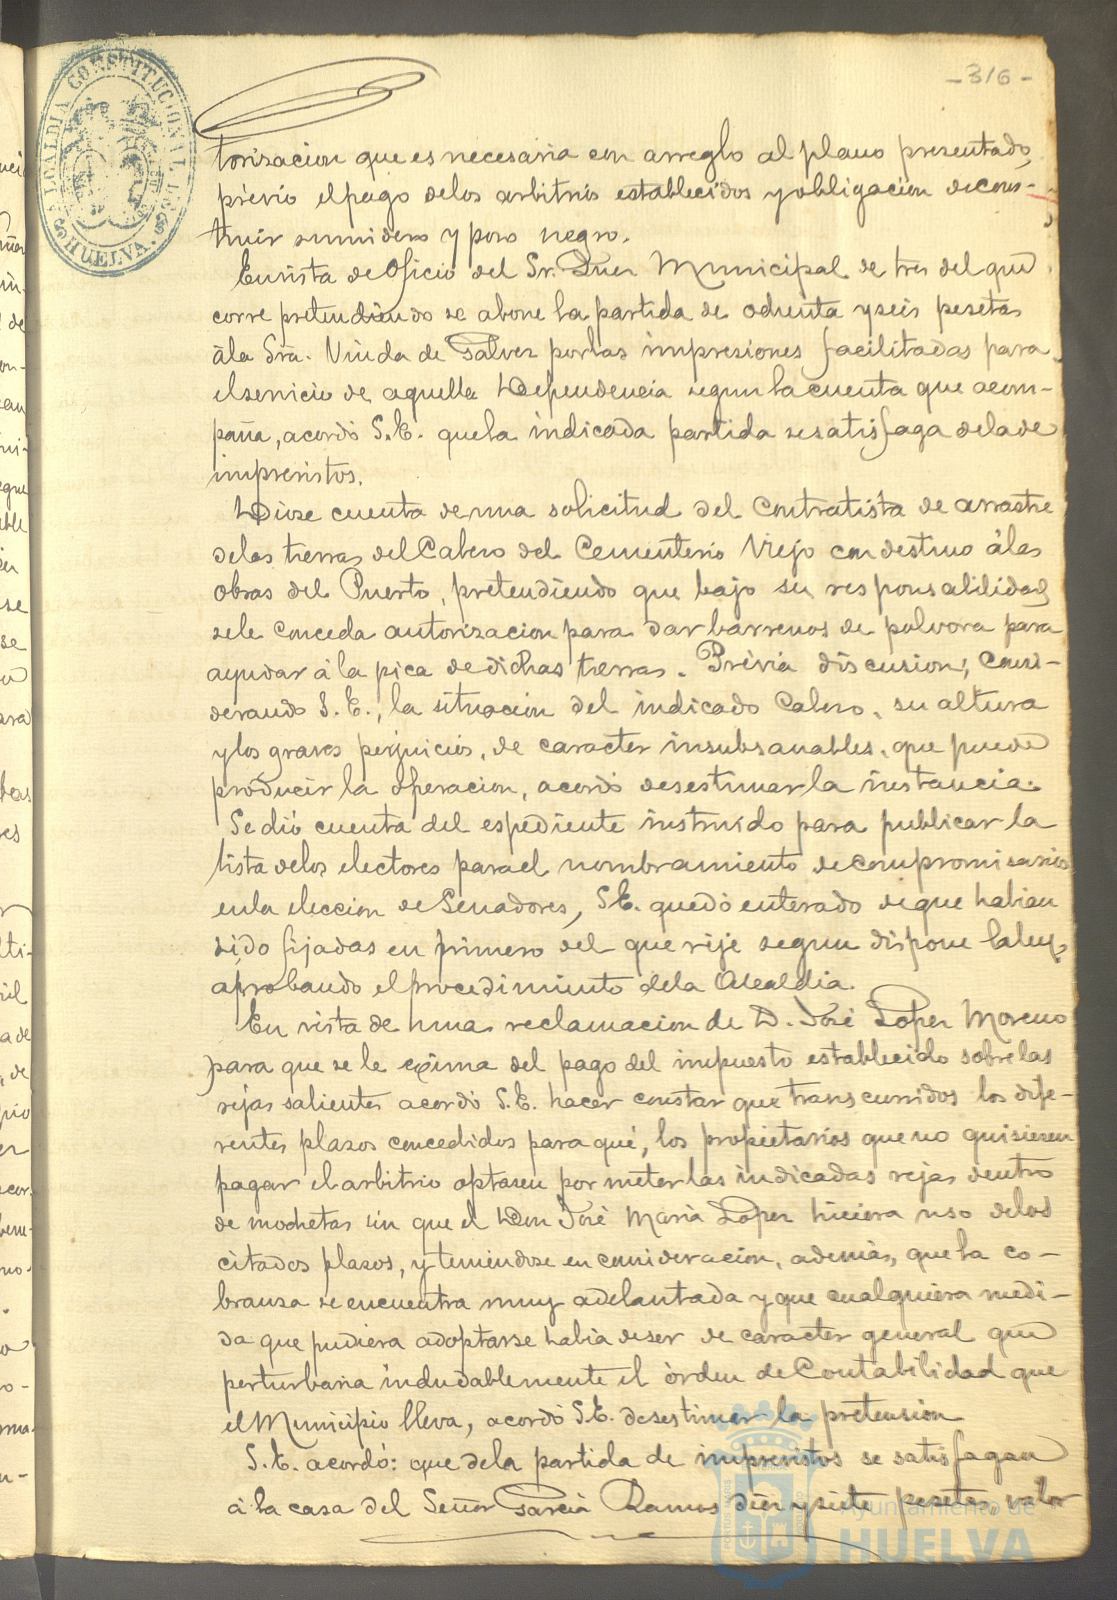 -316-
ALCALDIA CONSTITUCIONAL DE HUELVA
torizacion que es necesaria con arreglo al plano presentado,
prévio el pago de los arbitrios establecidos y obligacion de cons-
truir sumidero y pozo negro.
En vista de Oficio del Sr. Juez Municipal de tres del que
corre pretendiendo se abone la partida de ochenta y seis pesetas
á la Sra. Viuda de Galvez por las impresiones facilitadas para
el servicio de aquella Dependencia segun la cuenta que acom-
paña, acordó S.E. que la indicada partida se satisfaga de la de
imprevistos.
Dióse cuenta de una solicitud del Contratista de arrastre
de las tierras del Cabezo del Cementerio Viejo con destino á las
obras del Puerto, pretendiendo que bajo su responsabilidad
se le conceda autorizacion para dar barrenos de polvora para
ayudar á la pica de dichas tierras. Prévia discusion, consi-
derando S.E., la situacion del indicado Cabezo, su altura
y los graves perjuicios, de caracter insubsanables, que puede
producir la operacion, acordó desestimar la instancia.
Se dió cuenta del espediente instruido para publicar la
lista de los electores para el nombramiento de compromisarios
en la eleccion de Senadores, S.E. quedó enterado de que habian
sido fijadas en primero del que rije segun dispone la ley,
aprobando el procedimiento de la Alcaldia.
En vista de una reclamacion de D. José Lopez Moreno
para que se le exima del pago del impuesto establecido sobre las
rejas salientes acordó S.E. hacer constar que transcurridos los dife-
rentes plazos concedidos para qué, los propietarios que no quisiesen
pagar el arbitrio optasen por meter las indicadas rejas dentro
de mochetas sin que el Don José Maria Lopez hiciera uso de los
citados plazos, y teniendose en consideracion, además, que la co-
branza se encuentra muy adelantada y que cualquiera medi-
da que pudiera adoptarse habia de ser de caracter general que
perturbaria indudablemente el órden de Contabilidad que
el Municipio lleva, acordó S.E. desestimar la pretension
S.E. acordó: que de la partida de imprevistos se satisfagan
á la casa del Señor Garcia Ramos diez y siete pesetas, valor
Ayuntamiento de
HUELVA